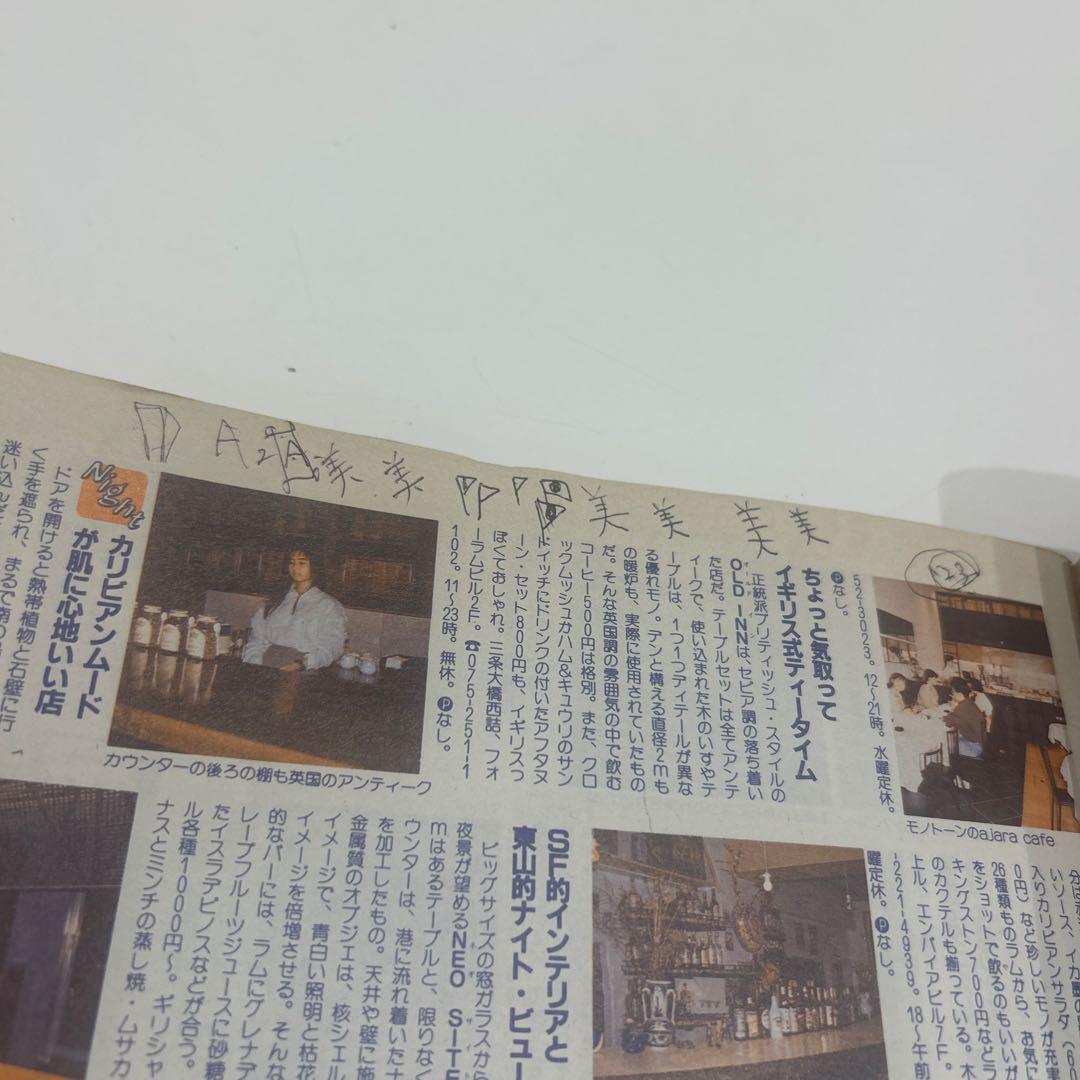 A 2A 美 美
美 美 美 美
23
Night
カリビアンムード
が肌に心地いい店
ドアを開けると熱帯植物と石壁に行
く手を遮られ、まるで南の
迷い込んだ
カウンターの後ろの棚も英国のアンティーク
ちょっと気取って
イギリス式ティータイム
正統派ブリティッシュ・スタイルの
OLD INNは、セピア調の落ち着い
オールド イン
た店だ。テーブルセットは全てアンテ
ィークで、使い込まれた木のいすやテ
ーブルは、1つ1つディテールが異な
る優れモノ。デンと構える直径2mも
の暖炉も、実際に使用されていたもの
だ。そんな英国調の雰囲気の中で飲む
コーヒー500円は格別。また、クロ
ックムッシュかハム&キュウリのサン
ドイッチにドリンクの付いたアフタヌ
ーン・セット800円も、イギリスっ
ぽくておしゃれ。三条大橋西詰、フォ
ーラムビル2F。☎075-251-1
102。11~23時。無休。Ⓟなし。
52-3023。12~21時。水曜定休。
Ⓟなし。
モノトーンのajara cafe
SF的インテリアと
東山的ナイト・ビュー
ビッグサイズの窓ガラスから
夜景が望めるNEO SITE
ネオ サイ
mはあるテーブルと、限りなく
ウンターは、港に流れ着いたナ
を加工したもの。天井や壁に施
金属質のオブジェは、核シェル
イメージで、青白い照明と枯花
イメージを倍増させる。そんな
的なバーには、ラムにグレナデ
レープフルーツジュースに砂糖
たイスラデピノスなどが合う。
ル各種1000円~。ギリシャ
ナスとミンチの蒸し焼・ムサカ
いソース、イカ
入りカリビアンサラダ(60
0円)など珍しいモノが充実
26種類ものラムから、お気に
をショットで飲るのもいいが
キングストン700円などラ
のカクテルも揃っている。木
上ル、エンパイアビル7F。
-221-4939。18~午前
曜定休。Ⓟなし。